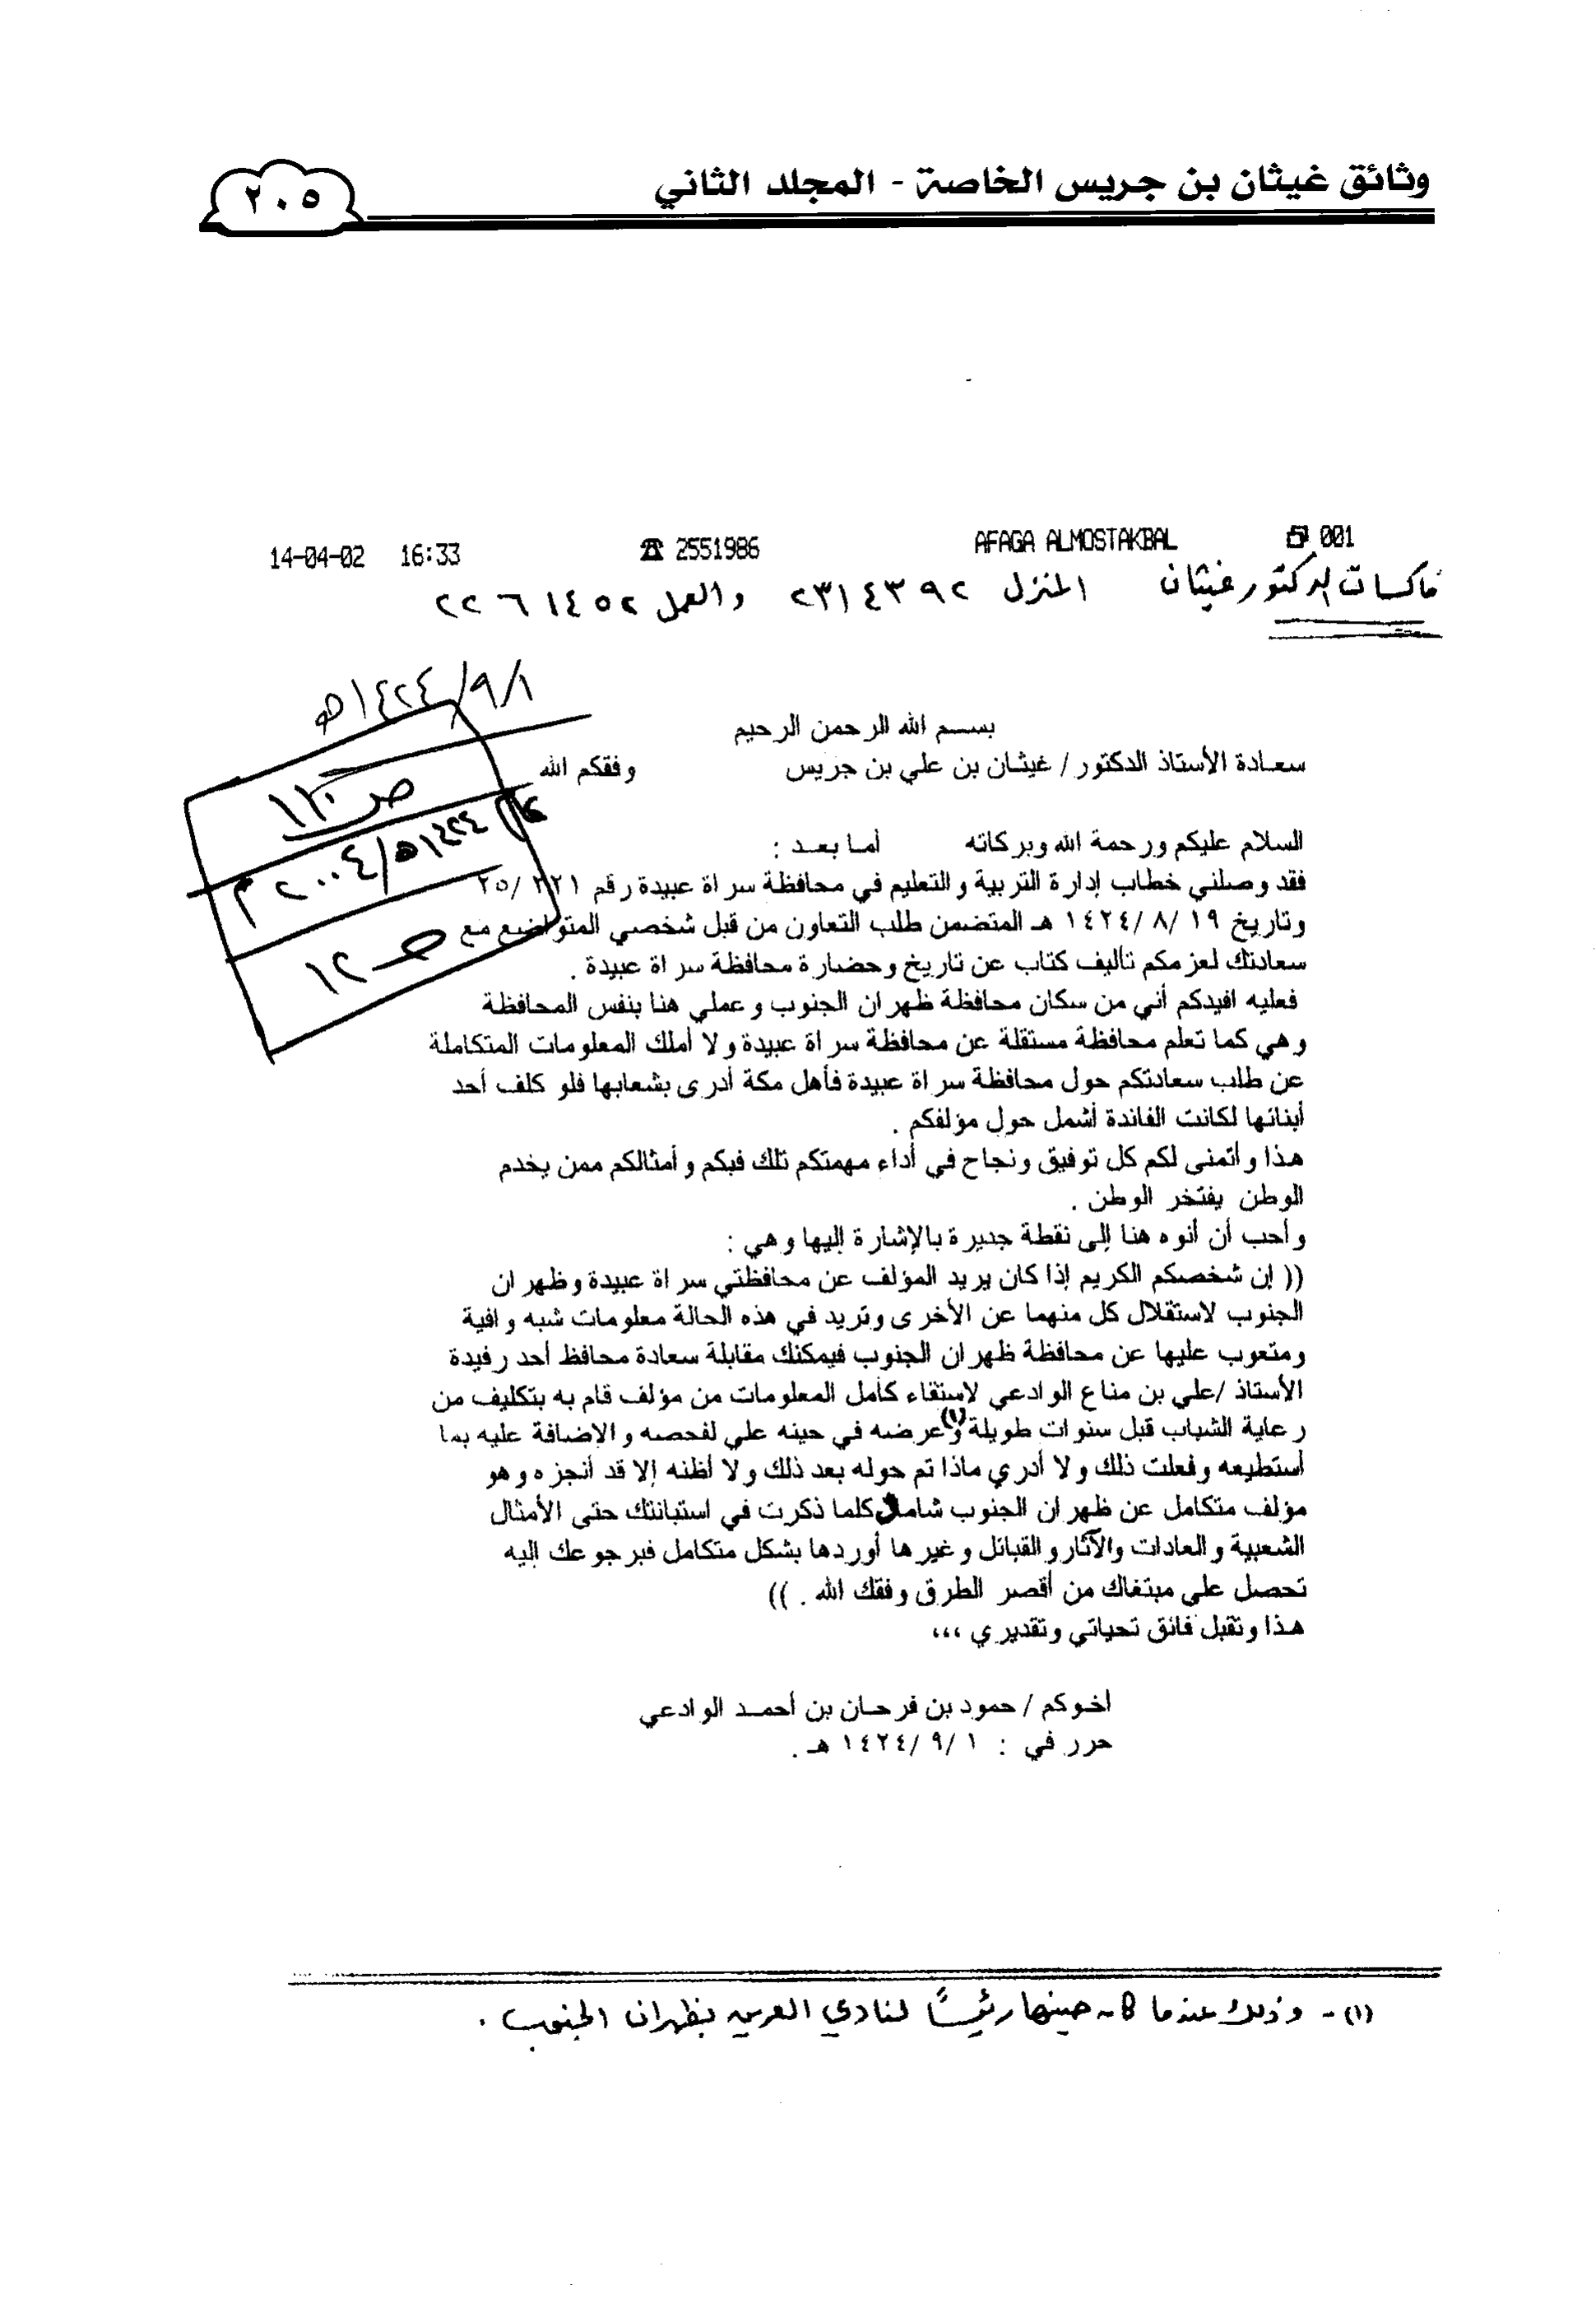 وثائق غيثان بن جريس الخاصة - المجلد الثاني
٢٠٥
14-04-02 16:33 ☎ 2551986 AFAGA ALMOSTAKBAL 001
فاكسات الدكتور غيثان المنزل ٢٣١٤٣٩٢ والعمل ٢٢٦١٤٥٢
١/٩/١٤٢٤هـ
ص ١٢
بسم الله الرحمن الرحيم
سعادة الأستاذ الدكتور / غيثان بن علي بن جريس وفقكم الله
السلام عليكم ورحمة الله وبركاته أما بعد :
فقد وصلني خطاب إدارة التربية والتعليم في محافظة سراة عبيدة رقم ٢٥/٣٢١
وتاريخ ١٩ /٨ /١٤٢٤ هـ المتضمن طلب التعاون من قبل شخصي المتواضع مع
سعادتك لعزمكم تأليف كتاب عن تاريخ وحضارة محافظة سراة عبيدة .
فعليه افيدكم أني من سكان محافظة ظهران الجنوب وعملي هنا بنفس المحافظة
وهي كما تعلم محافظة مستقلة عن محافظة سراة عبيدة ولا أملك المعلومات المتكاملة
عن طلب سعادتكم حول محافظة سراة عبيدة فأهل مكة أدرى بشعابها فلو كلف أحد
أبنائها لكانت الفائدة أشمل حول مؤلفكم .
هذا وأتمنى لكم كل توفيق ونجاح في أداء مهمتكم تلك فبكم وأمثالكم ممن يخدم
الوطن يفتخر الوطن .
وأحب أن أنوه هنا إلى نقطة جديرة بالإشارة إليها وهي :
(( إن شخصكم الكريم إذا كان يريد المؤلف عن محافظتي سراة عبيدة وظهران
الجنوب لاستقلال كل منهما عن الأخرى وتريد في هذه الحالة معلومات شبه وافية
ومتعوب عليها عن محافظة ظهران الجنوب فيمكنك مقابلة سعادة محافظ أحد رفيدة
الأستاذ /علي بن مناع الوادعي لاستقاء كامل المعلومات من مؤلف قام به بتكليف من
رعاية الشباب قبل سنوات طويلة (١) وعرضه في حينه علي لفحصه والإضافة عليه بما
أستطيعه وفعلت ذلك ولا أدري ماذا تم حوله بعد ذلك ولا أظنه إلا قد أنجزه وهو
مؤلف متكامل عن ظهران الجنوب شامل كلما ذكرت في استبانتك حتى الأمثال
الشعبية والعادات والآثار والقبائل وغيرها أوردها بشكل متكامل فبرجوعك إليه
تحصل علي مبتغاك من أقصر الطرق وفقك الله . ))
هذا وتقبل فائق تحياتي وتقديري ،،،
أخوكم / حمود بن فرحان بن أحمد الوادعي
حرر في : ١ /٩ /١٤٢٤ هـ .
(١) - وذلك عندما كان حينها رئيسًا لنادي العرين بظهران الجنوب .